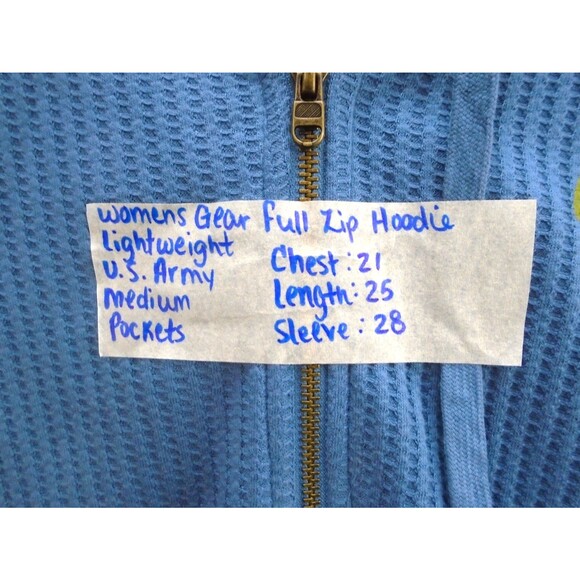 Womens Gear Full Zip Hoodie
Lightweight
U.S. Army
Medium
Pockets
Chest: 21
Length: 25
Sleeve: 28